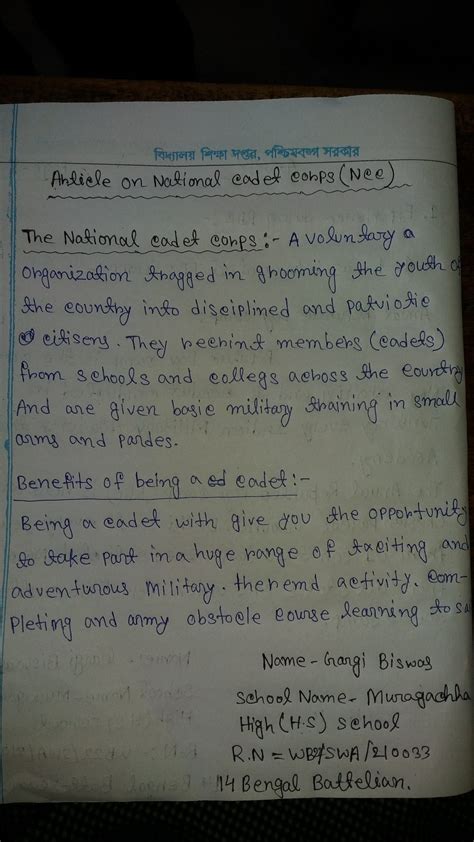 বিদ্যালয় শিক্ষা দপ্তর, পশ্চিমবঙ্গ সরকার
Article on National cadet corps (Ncc)
The National cadet corps :- A voluntary a
organization thagged in grooming the youth o
the country into disciplined and patviotic
citisens. They recruit members (cadets)
from schools and collegs across the country
And are given basic military training in small
arms and pardes.
Benefits of being a cadet :-
Being a cadet with give you the opportunity
to take part in a huge range of taciting and
adventurous military. themd activity. com-
pleting and army obstacle course learning to sa
Name - Gargi Biswas
School Name - Muragachha
High (H.S) School
R.N = SWA/210033
14 Bengal Battelian.